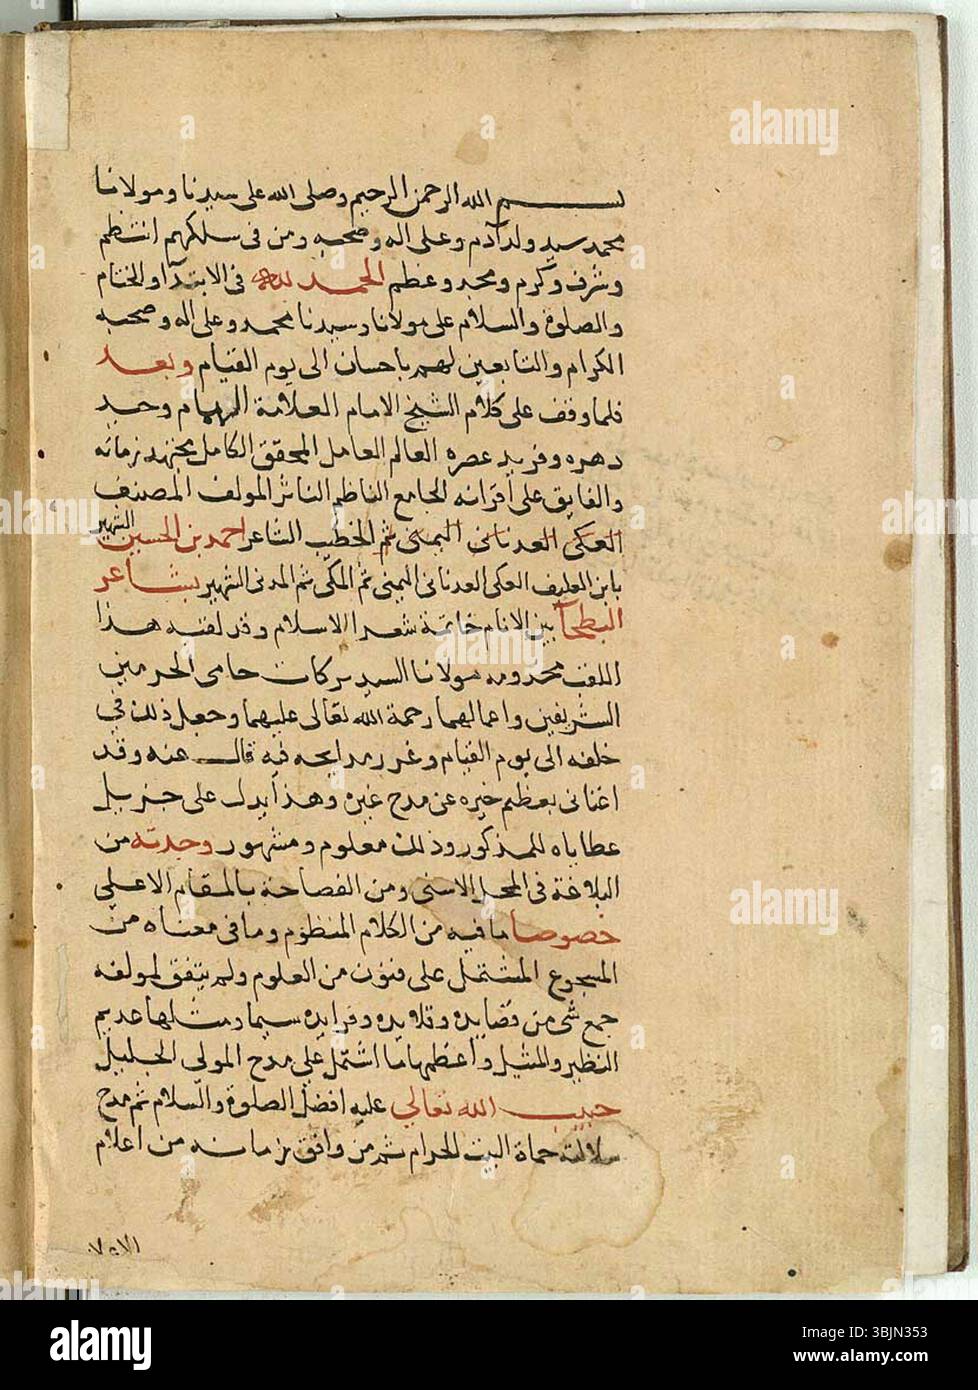 بسم الله الرحمن الرحيم وصلى الله على سيدنا ومولانا
محمد سيد ولد آدم وعلى اله وصحبه ومن فى سلكهم انتظم
وشرف وكرم ومجد وعظم الحمد لله فى الابتدآ والختام
والصلوة والسلام على مولانا وسيدنا محمد وعلى اله وصحبه
الكرام والتابعين لهم باحسان الى يوم القيام وبعد
فلما وقف على كلام الشيخ الامام العلامة الهمام وحيد
دهره وفريد عصره العالم العامل المحقق الكامل مجتهد زمانه
والفايق على أقرانه الجامع الناظم الناثر المولف المصنف
العكى العدنانى اليمنى ثم الخطيب الشاعر احمد بن الحسين الشهير
بابن العليف العكى العدنانى اليمنى ثم المكى ثم المدنى الشهير بشاعر
البطحآ بين الانام خاتمة شعرا الاسلام وقد لقبه هذا
اللقب مخدومه مولانا السيد بركات حامى الحرمين
الشريفين واعمالهما رحمة الله تعالى عليهما وجعل ذلك في
خلفه الى يوم القيام وغرر مدايحه فيه قال عنه وقد
اغنانى بعظيم خيره عن مدح غيره وهذا يدل على جزيل
عطاياه للمذكور وذلك معلوم ومشهور وجدته من
البلاغة فى المحل الاسنى ومن الفصاحة بالمقام الاعلى
خصوصا ما فيه من الكلام المنظوم وما فى معناه من
المسجوع المشتمل على فنون من العلوم ولم يتفق لمولفه
جمع شى من قصايده وقلايده وفرايده سيما ومثلها عديم
النظير والمثيل وأعظمها ما اشتمل على مدح المولى الجليل
حبيب الله تعالى عليه افضل الصلوة والسلام ثم مدح
سلالته حماة البيت الحرام ثم من وافق زمانه من اعلام
alamy
Image ID: 3BJN353
www.alamy.com